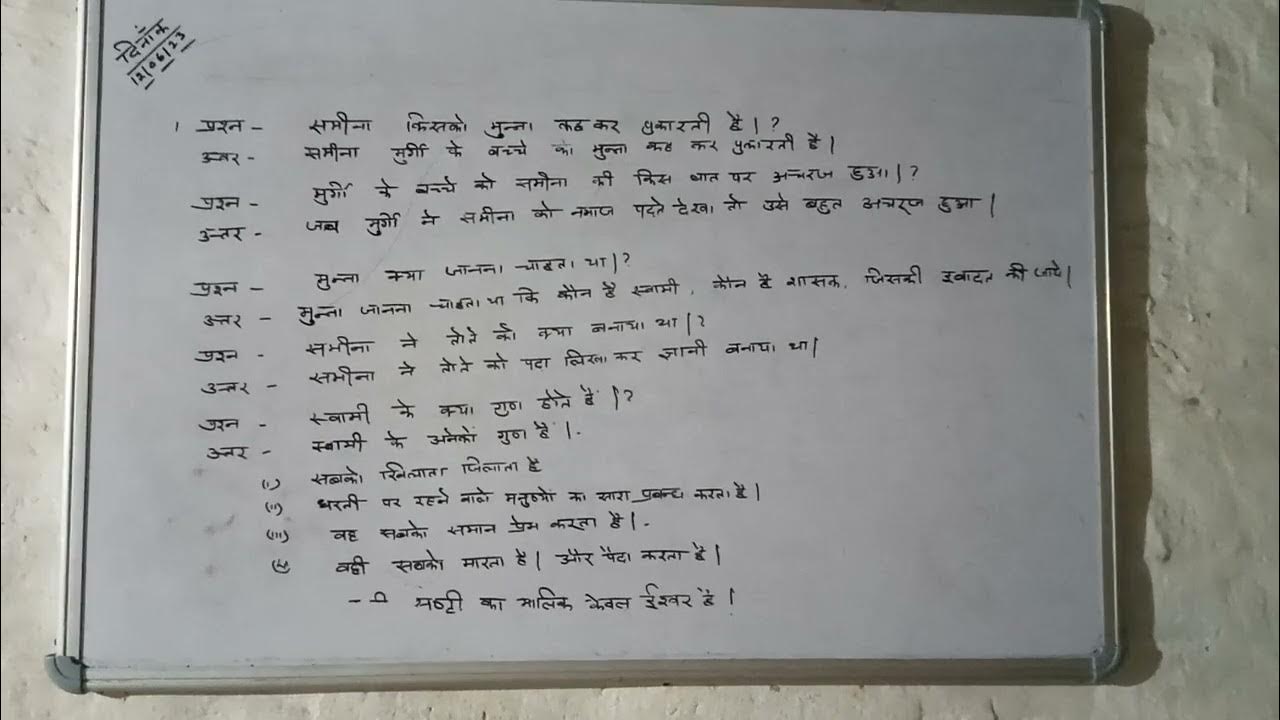 दिनाँक
12/06/23
1 प्रश्न - समीना किसको मुन्ना कह कर पुकारती है। ?
उत्तर - समीना मुर्गी के बच्चे को मुन्ना कह कर पुकारती है।
प्रश्न - मुर्गी के बच्चे को समीना की किस बात पर अचरज हुआ। ?
उत्तर - जब मुर्गे ने समीना को नमाज पढ़ते देखा तो उसे बहुत अचरज हुआ।
प्रश्न - मुन्ना क्या जानना चाहता था। ?
उत्तर - मुन्ना जानना चाहता था कि कौन है स्वामी, कौन है शासक, जिसकी इबादत की जाये।
प्रश्न - समीना ने तोते को क्या बनाया था। ?
उत्तर - समीना ने तोते को पढा लिखा कर ज्ञानी बनाया था।
प्रश्न - स्वामी के क्या गुण होते हैं। ?
उत्तर - स्वामी के अनेकों गुण हैं।
(i) सबको खिलाता पिलाता है
(ii) धरती पर रहने वाले मनुष्यों का सारा प्रबन्ध करता है।
(iii) वह सबको समान प्रेम करता है।
वही सबको मारता है। और पैदा करता है।
का मालिक केवल ईश्वर है।